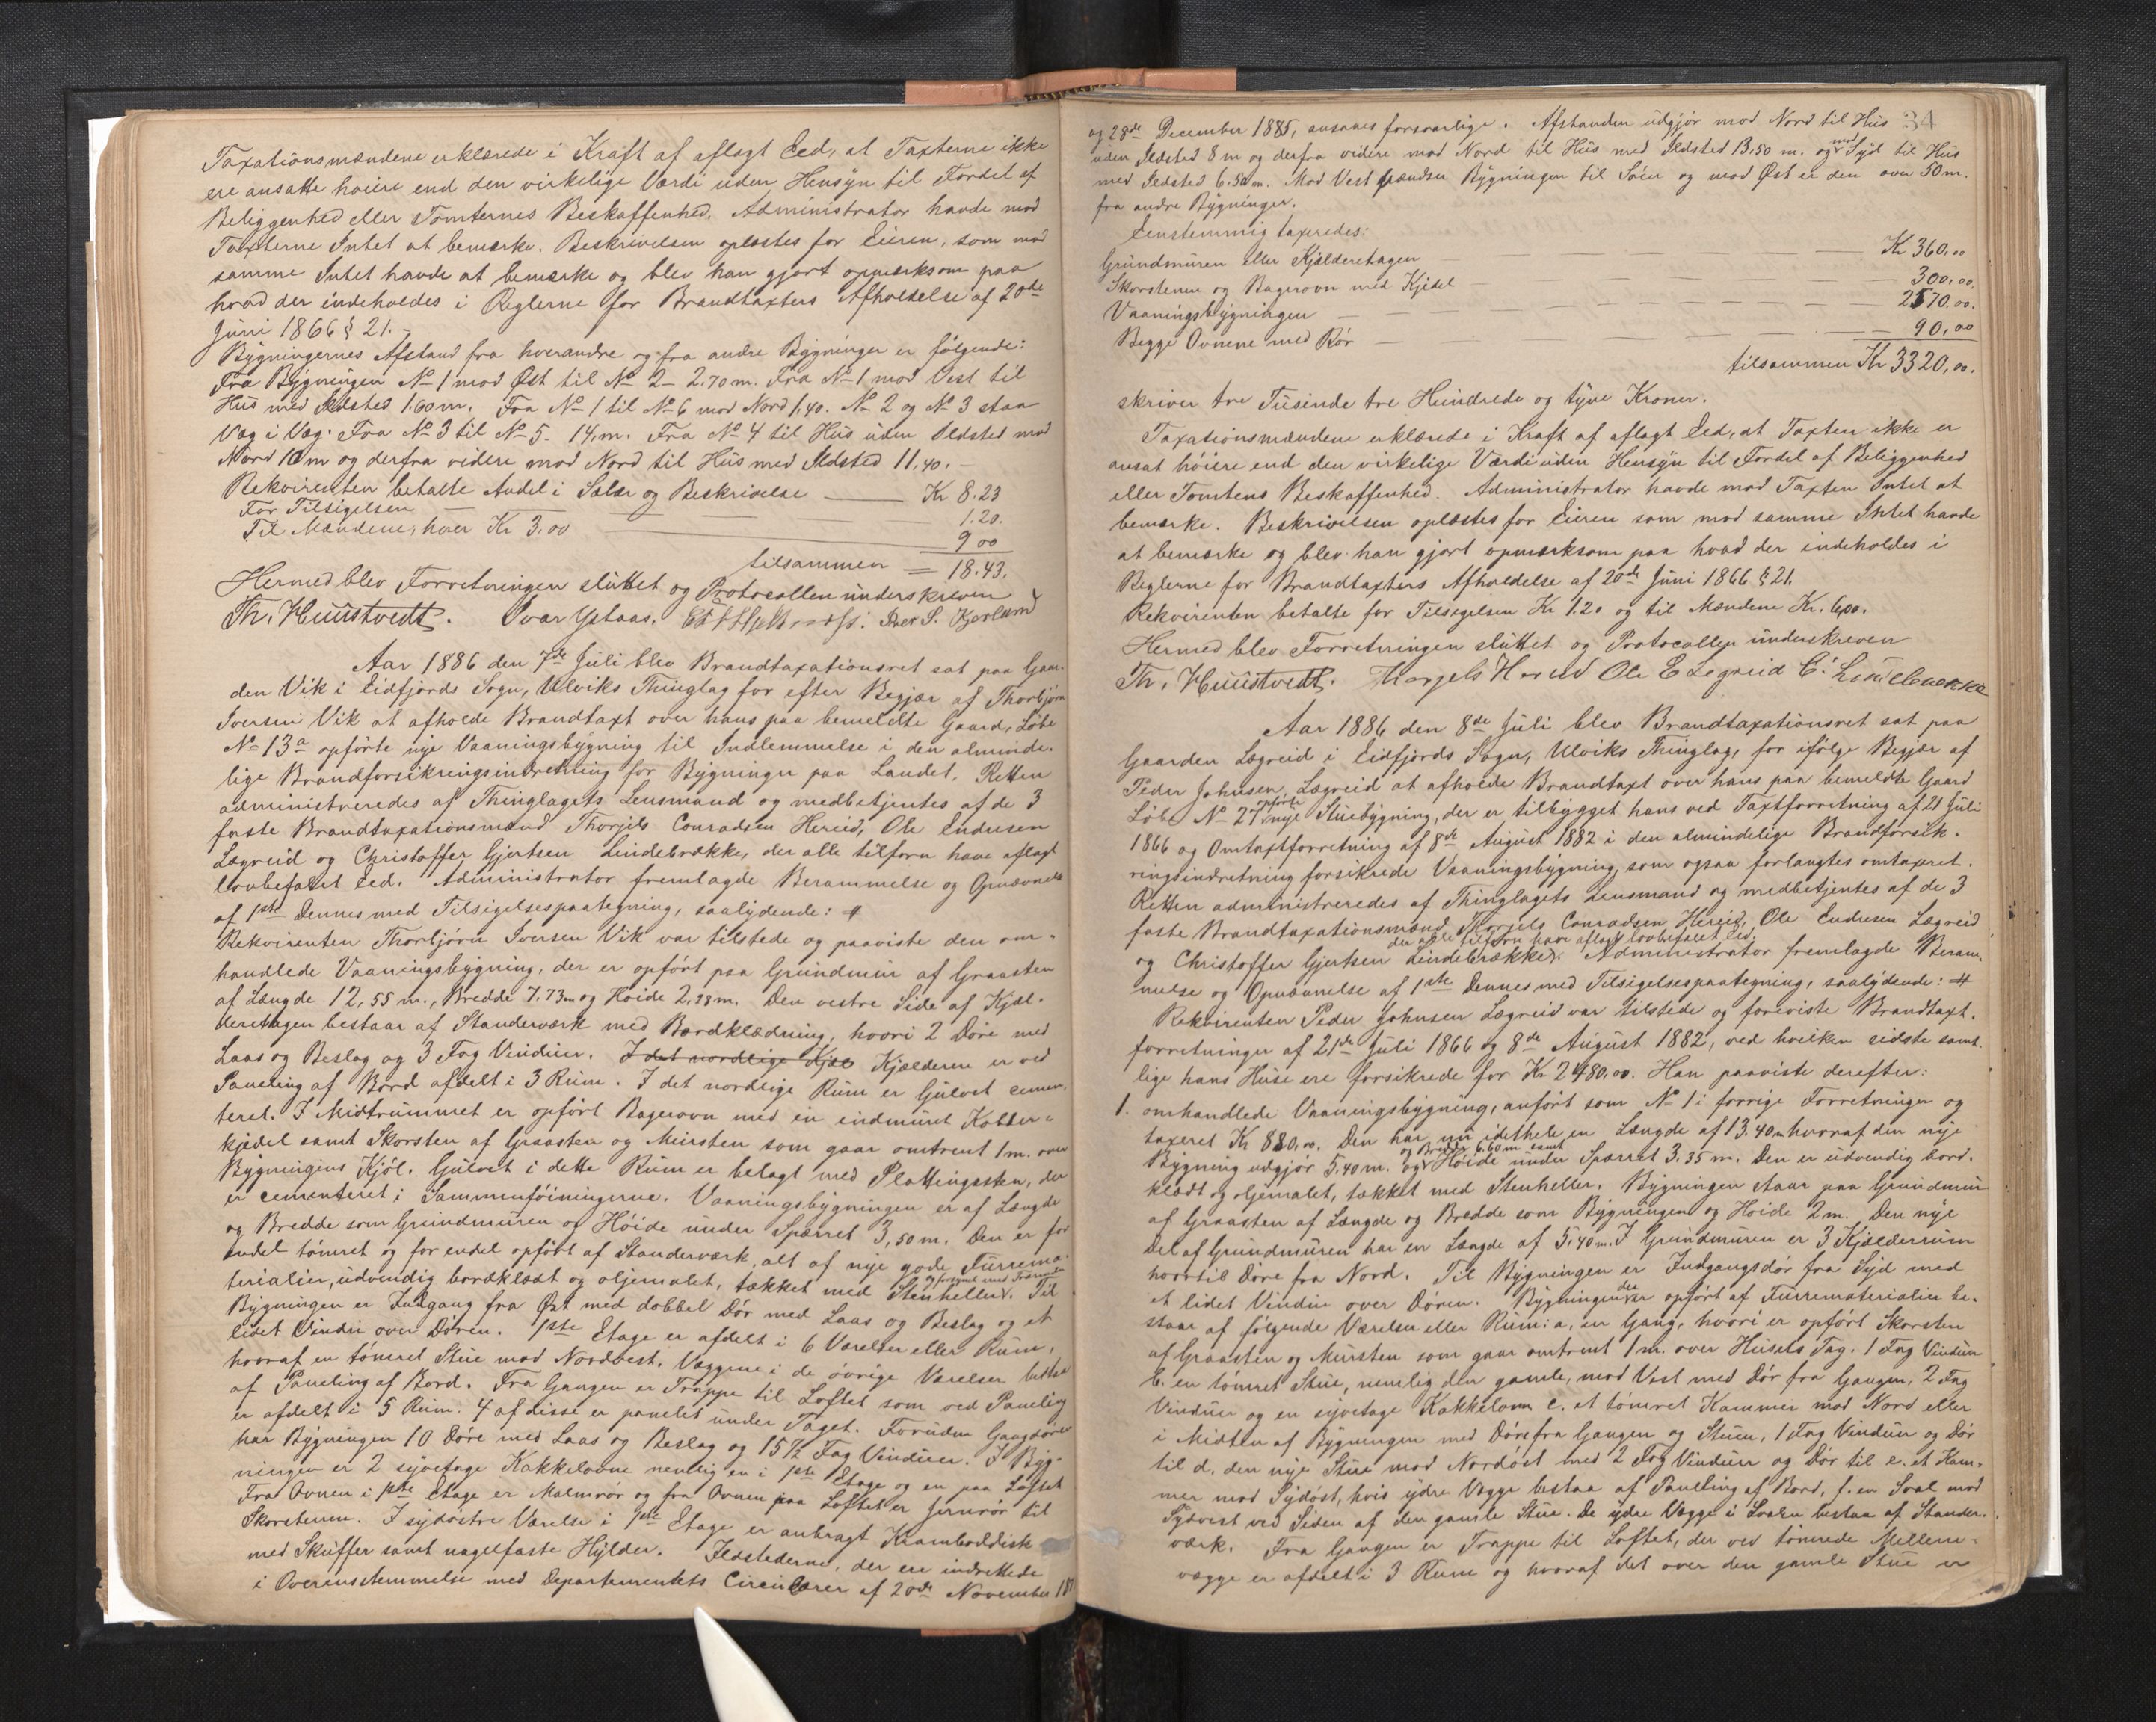 Taxationsmændene erklærede i Kraft af aflagt Eed, at Taxterne ikke
ere ansatte høiere end den virkelige Værdi uden Hensyn til Fordel af
Beliggenhed eller Tomternes Beskaffenhed. Administrator havde mod
Taxterne Intet at bemærke. Beskrivelsen oplæstes for Eieren, som mod
samme Intet havde at bemærke og blev han gjort opmærksom paa
hvad der indeholdes i Reglerne for Brandtaxters Afholdelse af 20de
Juni 1866 § 21.
Bygningernes Afstand fra hverandre og fra andre Bygninger er følgende:
Fra Bygningen No 1 mod Øst til No 2 - 2.70 m. Fra No 1 mod Vest til
Hus med Ildsted 1.60 m. Fra No 1 til No 6 mod Nord 1.40. No 2 og No 3 staa
Væg i Væg. Fra No 3 til No 5 - 14 m. Fra No 4 til Hus uden Ildsted mod
Nord 10 m og derfra videre mod Nord til Hus med Ildsted 11,40.
Rekvirenten betalte Andel i Salær og Beskrivelse — Kr 8.23
For Tilsigelsen — 1.20.
Til Mændene, hver Kr 3.00 — 9 00
tilsammen = 18.43.
Hermed blev Forretningen sluttet og Protocollen underskreven
Th. Huustvedt. Ivar Ystaas. Iver S. Kjerland
Aar 1886 den 7de Juli blev Brandtaxationsret sat paa Gaar-
den Vik i Eidfjords Sogn, Ulviks Thinglag for efter Begjær af Thorbjørn
Iversen Vik at afholde Brandtaxt over hans paa bemeldte Gaard, Løbe
No 13a opførte nye Vaaningsbygning til Indlemmelse i den alminde-
lige Brandforsikringsindretning for Bygninger paa Landet. Retten
administreredes af Thinglagets Lensmand og medbetjentes af de 3
faste Brandtaxationsmænd Thorgils Conradsen Hereid, Ole Endresen
Lægreid og Christoffer Gjertsen Lindebrække, der alle tilforn have aflagt
lovbefalet Eed. Administrator fremlagde Berammelse og Opnævnelse
af 1ste Dennes med Tilsigelsespaategning, saalydende: #
Rekvirenten Thorbjørn Iversen Vik var tilstede og paaviste den om-
handlede Vaaningsbygning, der er opført paa Grundmur af Graasten
af Længde 12,55 m., Bredde 7.73 m og Høide 2,28 m. Den vestre Side af Kjæl-
deretagen bestaar af Standerværk med Bordklædning, hvori 2 Døre med
Laas og Beslag og 3 Fag Vinduer. I det nordlige Kjæl Kjælderen er ved
Paneling af Bord afdelt i 3 Rum. I det nordlige Rum er Gulvet cemen-
teret. I Midtrummet er opført Bagerovn med en indmuret Kobber-
kjedel samt Skorsten af Graasten og Mursten som gaar omtrent 1 m. over
Bygningens Kjøl. Gulvet i dette Rum er belagt med Plattingssten, der
er cementeret i Sammenføiningerne. Vaaningsbygningen er af Længde
og Bredde som Grundmuren og Høide under Spærret 3,50 m. Den er for
endel tømret og for endel opført af Standerværk, alt af nye gode Furrema-
terialier, udvendig bordklædt og oljemalet, tækket med Stenheller. Til
Bygningen er Indgang fra Øst med dobbel Dør med Laas og Beslag og et
lidet Vindu over Døren. 1ste Etage er afdelt i 6 Værelser eller Rum,
hvoraf en tømret Stue mod Nordvest. Væggene i de øvrige Værelser bestaa
af Paneling af Bord. Fra Gangen er Trappe til Loftet som ved Paneling
er afdelt i 5 Rum. 4 af disse er panelet under Taget. Foruden Gangdøren
har Bygningen 10 Døre med Laas og Beslag og 15½ Fag Vinduer. I Byg-
ningen er 2 syvetage Kakkelovne nemlig en i 1ste Etage og en paa Loftet
Fra Ovnen i 1ste Etage er Malmrør og fra Ovnen paa Loftet er Jernrør til
Skorstenen. I sydøstre Værelse i 1ste Etage er anbragt Kramboddisk
med Skuffer samt nagelfaste Hylder. Ildstederne, der ere indrettede
i Overensstemmelse med Departementets Circulærer af 20de November
34
og 28de December 1885, ansaaes forsvarlige. Afstanden udgjør mod Nord til Hus
uden Ildsted 8 m og derfra videre mod Nord til Hus med Ildsted 13.50 m. og mod Syd til Hus
med Ildsted 6.50 m. Mod Vest grændser Bygningen til Søen og mod Øst er den over 50 m.
fra andre Bygninger.
Eenstemmig taxeredes:
Grundmuren eller Kjælderetagen — Kr 360,00
Skorstenen og Bagerovn med Kjedel — 300,00.
Vaaningsbygningen — 2570.00.
Begge Ovnene med Rør — 90,00
tilsammen Kr 3320,00.
skriver tre Tusinde tre Hundrede og tyve Kroner.
Taxationsmændene erklærede i Kraft af aflagt Eed, at Taxten ikke er
ansat høiere end den virkelige Værdi uden Hensyn til Fordel af Beliggenhed
eller Tomtens Beskaffenhed. Administrator havde mod Taxten Intet at
bemærke. Beskrivelsen oplæstes for Eieren som mod samme Intet havde
at bemærke og blev han gjort opmærksom paa hvad der indeholdes i
Reglerne for Brandtaxters Afholdelse af 20de Juni 1866 § 21.
Rekvirenten betalte for Tilsigelsen Kr 1.20 og til Mændene Kr. 6,00.
Hermed blev Forretningen sluttet og Protocollen underskreven
Th. Huustvedt. Thorgels Hereid Ole E Legreid C. Lindebrække
Aar 1886 den 8de Juli blev Brandtaxationsret sat paa
Gaarden Lægreid i Eidfjords Sogn, Ulviks Thinglag, for ifølge Begjær af
Peder Johnsen Lægreid at afholde Brandtaxt over hans paa bemeldte Gaard
Løbe No 27 opførte nye Stuebygning, der er tilbygget hans ved Taxtforretning af 21 Juli
1866 og Omtaxtforretning af 8de August 1882 i den almindelige Brandforsik-
ringsindretning forsikrede Vaaningsbygning, som ogsaa forlangtes omtaxeret.
Retten administreredes af Thinglagets Lensmand og medbetjentes af de 3
faste Brandtaxationsmænd Thorgels Conradsen Hereid, Ole Endresen Lægreid
og Christoffer Gjertsen Lindebrække, der alle tilforn have aflagt lovbefalet Eed. Administrator fremlagde Beram-
melse og Opnævnelse af 1ste Dennes med Tilsigelsespaategning, saalydende: #
Rekvirenten Peder Johnsen Lægreid var tilstede og foreviste Brandtaxt-
forretninger af 21de Juli 1866 og 8de August 1882, ved hvilken sidste samt-
lige hans Huse ere forsikrede for Kr 2480,00. Han paaviste derefter:
1. omhandlede Vaaningsbygning, anført som No 1 i forrige Forretninger og
taxeret Kr 880,00. Den har nu idethele en Længde af 13.40 m hvoraf den nye
Bygning udgjør 5,40 m. og Bredde 6.60 m samt Høide under Spærret 3.35 m. Den er udvendig bord-
klædt og oljemalet, tækket med Stenheller. Bygningen staar paa Grundmur
af Graasten af Længde og Bredde som Bygningen og Høide 2 m. Den nye
Del af Grundmuren har en Længde af 5,40 m. I Grundmuren er 3 Kjælderrum
hvortil Døre fra Nord. Til Bygningen er Indgangsdør fra Syd med
et lidet Vindue over Døren. Bygningen der er opført af Furrematerialier be-
staar af følgende Værelser eller Rum: a, en Gang, hvori er opført Skorsten
af Graasten og Mursten som gaar omtrent 1 m. over Husets Tag. 1 Fag Vinduer
b. en tømret Stue, nemlig den gamle, mod Vest med Dør fra Gangen, 2 Fag
Vinduer og en syvetage Kakkelovn c. et tømret Kammer mod Nord eller
i Midten af Bygningen med Døre fra Gangen og Stuen, 1 Fag Vinduer og Dør
til d. den nye Stue mod Nordøst med 2 Fag Vinduer og Dør til e. et Kam-
mer mod Sydøst, hvis ydre Vægge bestaa af Paneling af Bord, f. en Sval mod
Sydvest ved Siden af den gamle Stue. De ydre Vægge i Svalen bestaa af Stander-
værk. Fra Gangen er Trappe til Loftet, der ved tømrede Mellem-
vægge er afdelt i 3 Rum og hvoraf det over den gamle Stue er